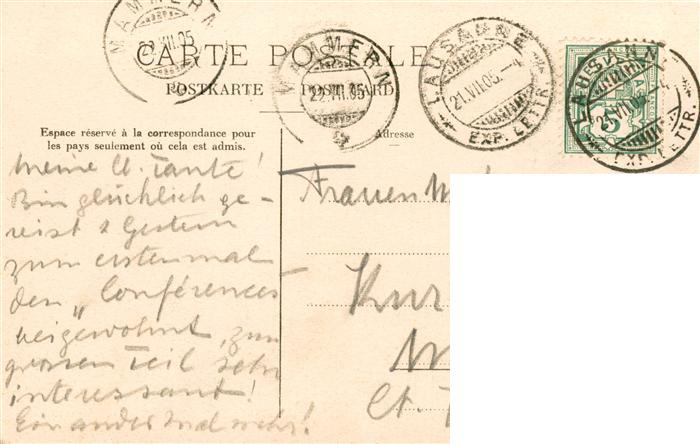 MAMMERN
22.VII.05
CARTE POSTALE
POSTKARTE
POSTCARD
MAMMERN
22.VII.05
LAUSANNE
21.VII.05.-4
EXP. LETTR.
LAUSANNE
21.VII.05.-4
EXP. LETTR.
5
Espace réservé à la correspondance pour
les pays seulement où cela est admis.
Adresse
Meine lb. Tante!
Bin glücklich ge-
reist & gestern
zum erstenmal
den "Conférences"
beigewohnt, zum
grossen Teil sehr
interessant!
Ein ander Mal mehr!
Frauen
Kur
Ct.